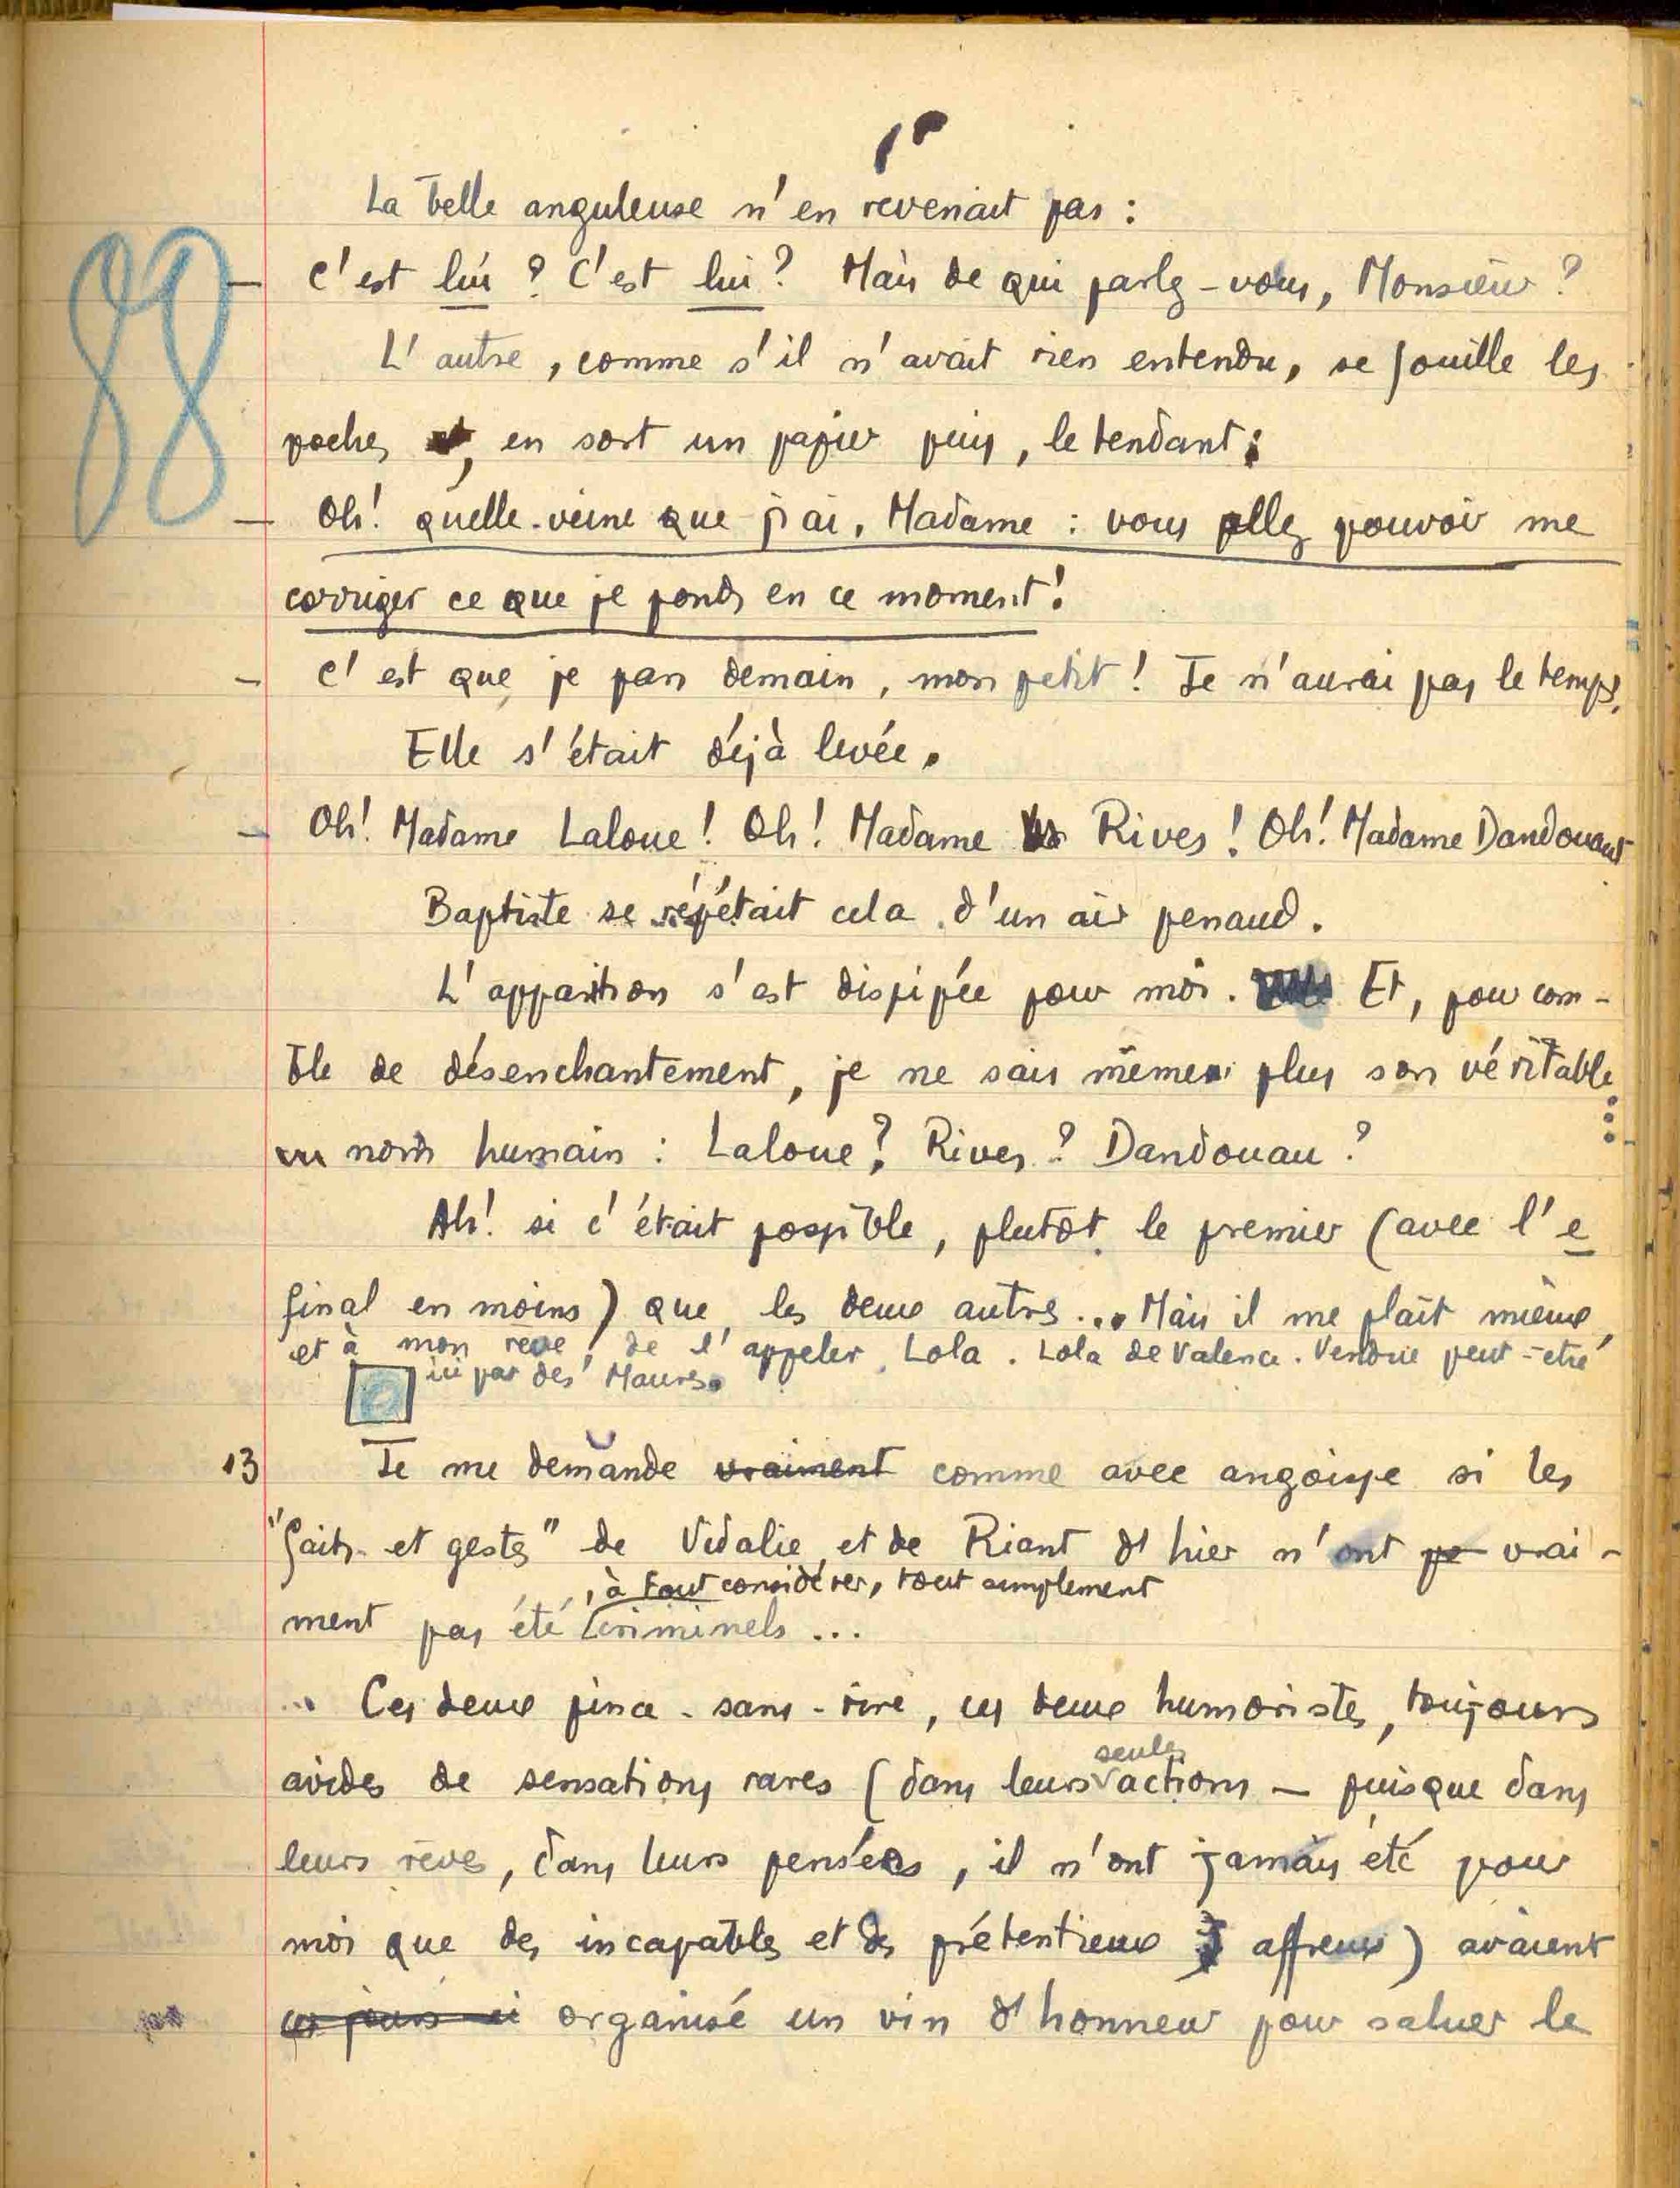 88
La belle anguleuse n'en revenait pas :
— C'est lui ? C'est lui ? Mais de qui parlez-vous, Monsieur ?
L'autre, comme s'il n'avait rien entendu, se fouille les
poches, en sort un papier puis, le tendant :
— Oh! quelle veine que j'ai, Madame : vous allez pouvoir me
corriger ce que je ponds en ce moment !
— C'est que je pars demain, mon petit ! Je n'aurai pas le temps.
Elle s'était déjà levée.
— Oh! Madame Laloue ! Oh! Madame Rives ! Oh! Madame Dandouau
Baptiste se répétait cela d'un air penaud.
L'apparition s'est dissipée pour moi. Et, pour com-
ble de désenchantement, je ne sais même plus son véritable
nom humain : Laloue ? Rives ? Dandouau ?
Ah! si c'était possible, plutôt le premier (avec l'e
final en moins) que les deux autres... Mais il me plaît mieux,
et à mon rêve, de l'appeler Lola. Lola de Valence. Vendue peut-être
ici par des Maures.
13 Je me demande vraiment comme avec angoisse si les
"faits et gestes" de Vidalie et de Riant d'hier n'ont pa vrai-
, à tout considérer, tout simplement
ment pas été criminels...
Ces deux pince-sans-rire, ces deux humoristes, toujours
seules
avides de sensations rares (dans leurs actions — puisque dans
leurs rêves, dans leurs pensées, il n'ont jamais été pour
moi que des incapables et des prétentieux affreux) avaient
ces jours-ci organisé un vin d'honneur pour saluer le